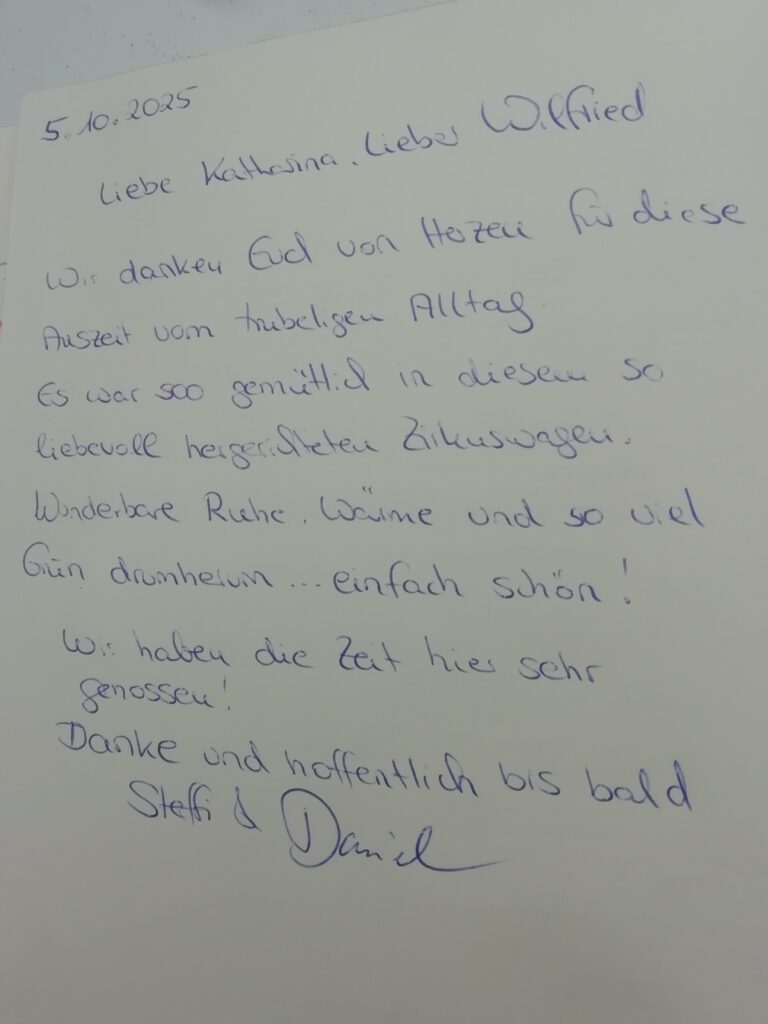 5.10.2025
Liebe Katharina, Lieber Wilfried
Wir danken Euch von Herzen für diese
Auszeit vom trubeligen Alltag.
Es war soo gemütlich in diesem so
liebevoll hergerichteten Zirkuswagen.
Wunderbare Ruhe, Wärme und so viel
Grün drumherum ... einfach schön!
Wir haben die Zeit hier sehr
genossen!
Danke und hoffentlich bis bald
Steffi & Daniel